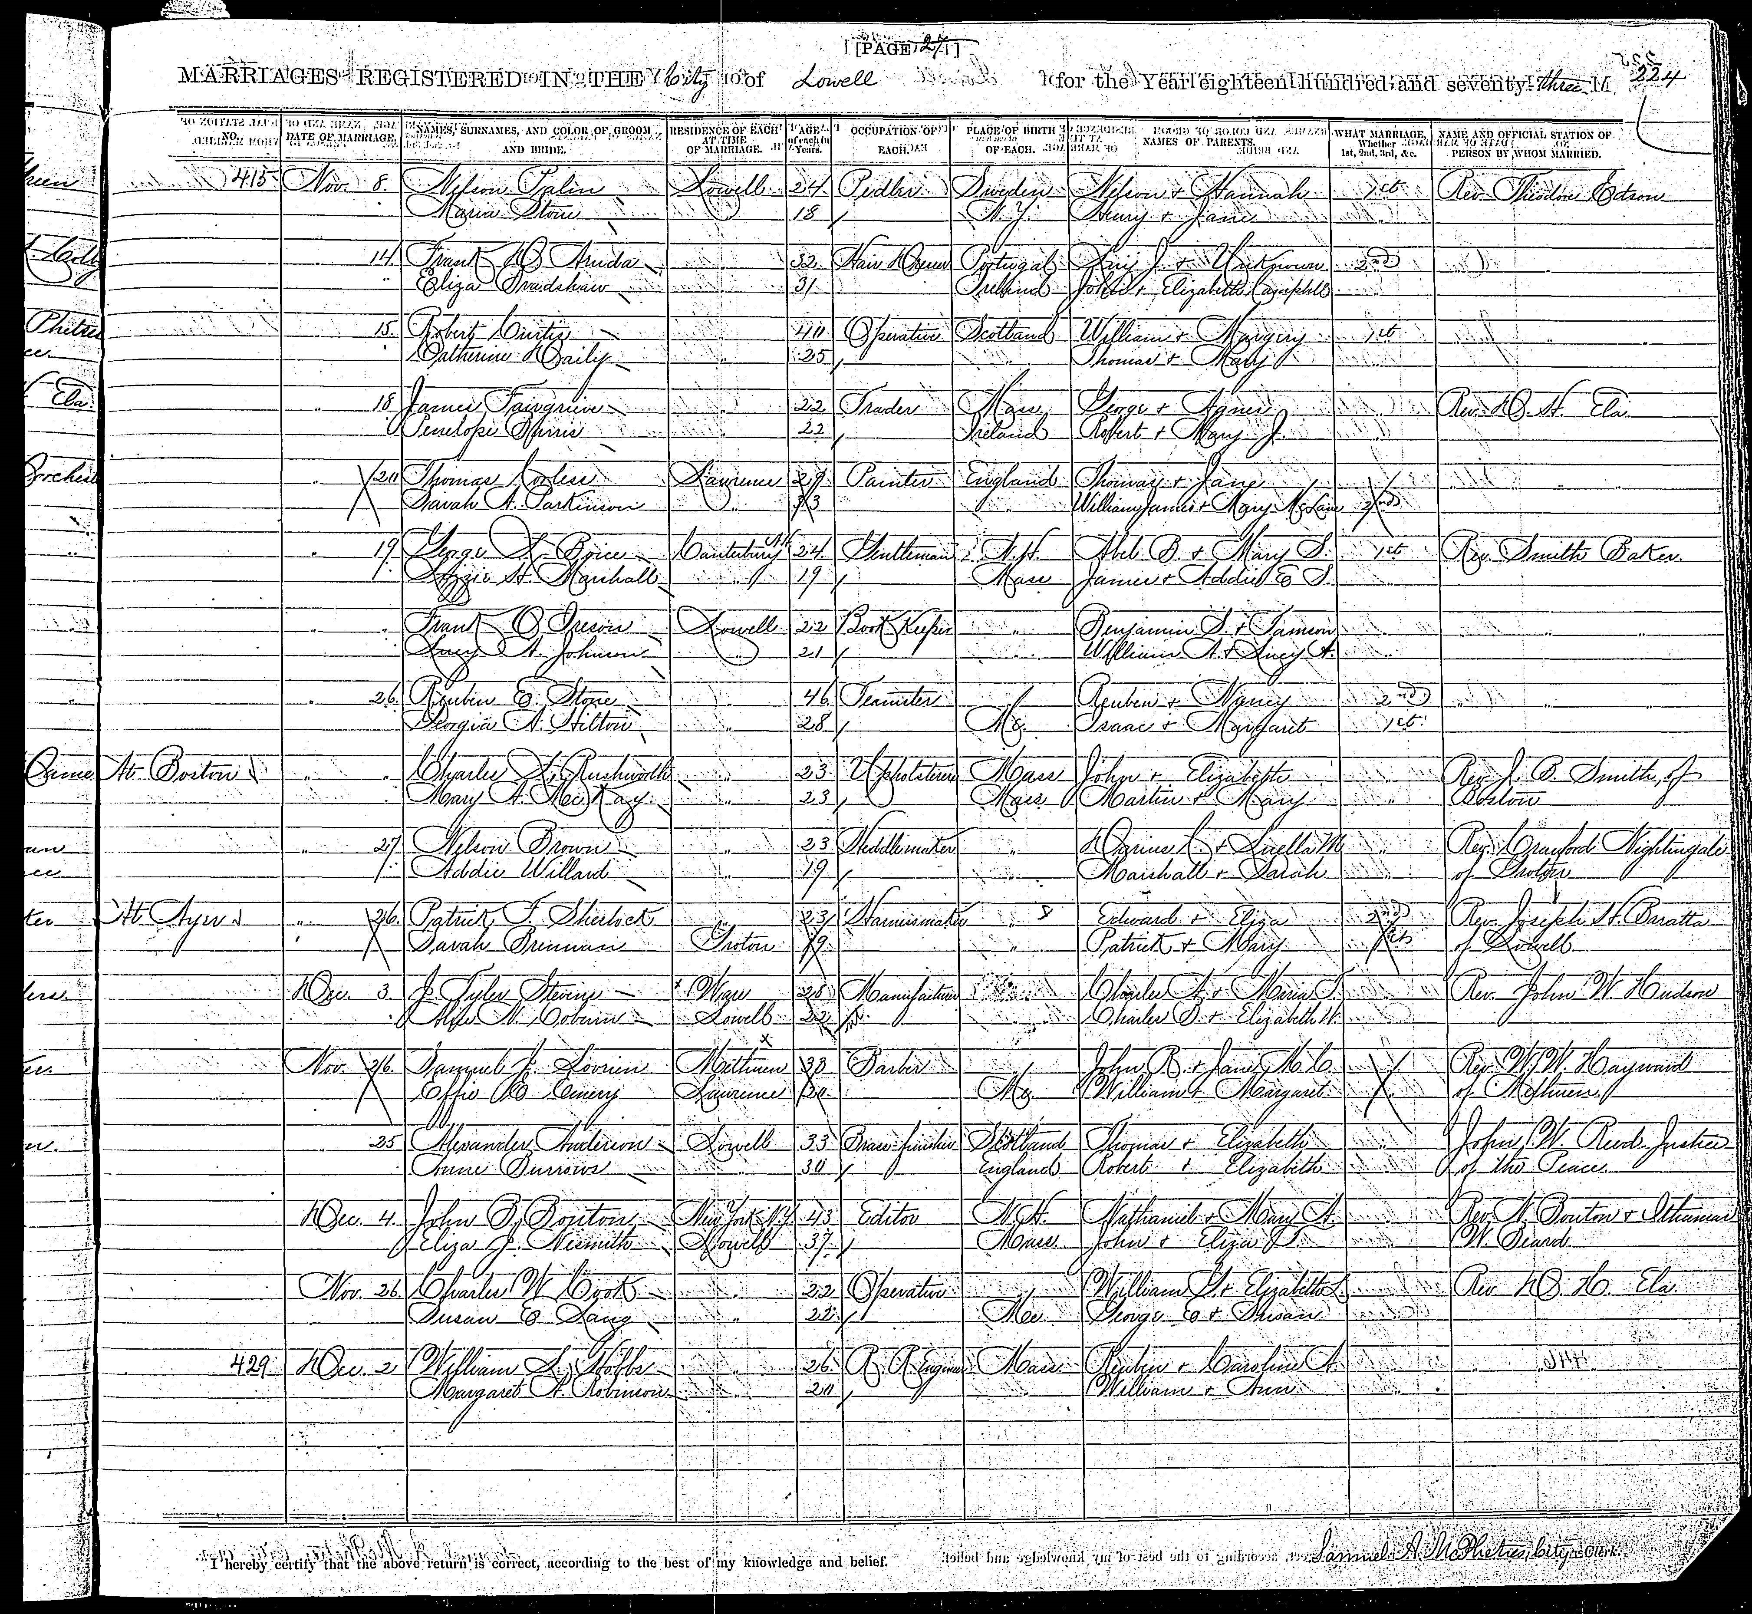 [PAGE 27]
MARRIAGES REGISTERED IN THE City of Lowell for the Year eighteen hundred and seventy-three 224
NO. DATE OF MARRIAGE. NAMES, SURNAMES, AND COLOR OF GROOM AND BRIDE. RESIDENCE OF EACH AT TIME OF MARRIAGE. AGE of each in Years. OCCUPATION OF EACH. PLACE OF BIRTH OF EACH. NAMES OF PARENTS. WHAT MARRIAGE, Whether 1st, 2nd, 3rd, &c. NAME AND OFFICIAL STATION OF PERSON BY WHOM MARRIED.
415 Nov. 8 Nelson Palin Lowell 24 Pedler Sweden Nelson + Hannah 1st Rev. Theodore Edson
Maria Stone " 18 N.Y. Henry + Jane "
" 14 Frank D. Aruda " 32 Hair Dresser Portugal J. + Unknown 2nd "
Eliza Bradshaw " 31 Ireland John + Elizabeth Campbell "
" 15 Robert Curtis " 40 Operative Scotland William + Margery 1st "
Catherine Daily " 25 " Thomas + Mary "
" 18 James Fairgrieve " 22 Trader Mass George + Agnes " Rev. D. H. Ela
Penelope " 22 Ireland Robert + Mary J. "
" 20 Thomas Corless Lawrence 29 Painter England Thomas + Jane " "
Sarah A. Parkinson " 33 " William James + Mary McLane 2nd
" 19 George L. Brice Canterbury N.H. 24 Gentleman N.H. Abel B. + Mary S. 1st Rev. Smith Baker
Lizzie H. Marshall " 19 Mass James + Addie E. S. "
" " Frank O. Ireson Lowell 22 Book Keeper " Benjamin S. + Tamson " "
Lucy A. Johnson " 21 " William A. + Lucy A. "
" 26 Reuben E. Stone " 46 Teamster " Reuben + Nancy 2nd "
Georgia A. Hilton " 28 Me. Isaac + Margaret 1st
At Boston " " Charles L. Rushworth " 23 Upholsterer Mass John + Elizabeth " Rev. J. B. Smith, of
Mary A. McKay " 23 Mass Martin + Mary " Boston
" 27 Nelson Brown " 23 Needlemaker " Darius C. + Luella M " Rev. Crawford Nightingale
Addie Willard " 19 " Marshall + Sarah " of Groton
At Ayer " 26 Patrick F. Sherlock " 23 Harnessmaker " Edward + Eliza 2nd Rev. Joseph H. Baratta
Sarah Brennan Groton 19 " Patrick + Mary 1st of Lowell
Dec. 3 J. Tyler Stevens Ware 28 Manufacturer " Charles A. + Maria T. " Rev. John W. Hudson
Alice N. Coburn Lowell 22 " Charles B. + Elizabeth W. "
Nov. 26 Samuel J. Methuen 33 Barber " John R. + Jane M. C. " Rev. W. W. Hayward
Effie D. Emery Lawrence 20 Me. William + Margaret " of Methuen
" 25 Alexander Anderson Lowell 33 Brass finisher Scotland Thomas + Elizabeth " John W. Reed, Justice
Anne Burrows " 30 England Robert + Elizabeth " of the Peace
Dec. 4 John B. Bouton New York N.Y. 43 Editor N.H. Nathaniel + Mary A. " Rev. N. Bouton + Ithamar
Eliza J. Nesmith Lowell 37 Mass. John + Eliza " W. Beard
Nov. 26 Charles W. Cook " 22 Operative " William S. + Elizabeth " Rev. D. H. Ela
Susan E. Lang " 22 Me. George E. + Susan "
429 Dec. 2 William S. Hobbs " 26 R. R. Engineer Mass Reuben + Caroline A. "
Margaret A. Robinson " 20 William + Ann "
I hereby certify that the above return is correct, according to the best of my knowledge and belief. Samuel A. McPhetres, City Clerk.